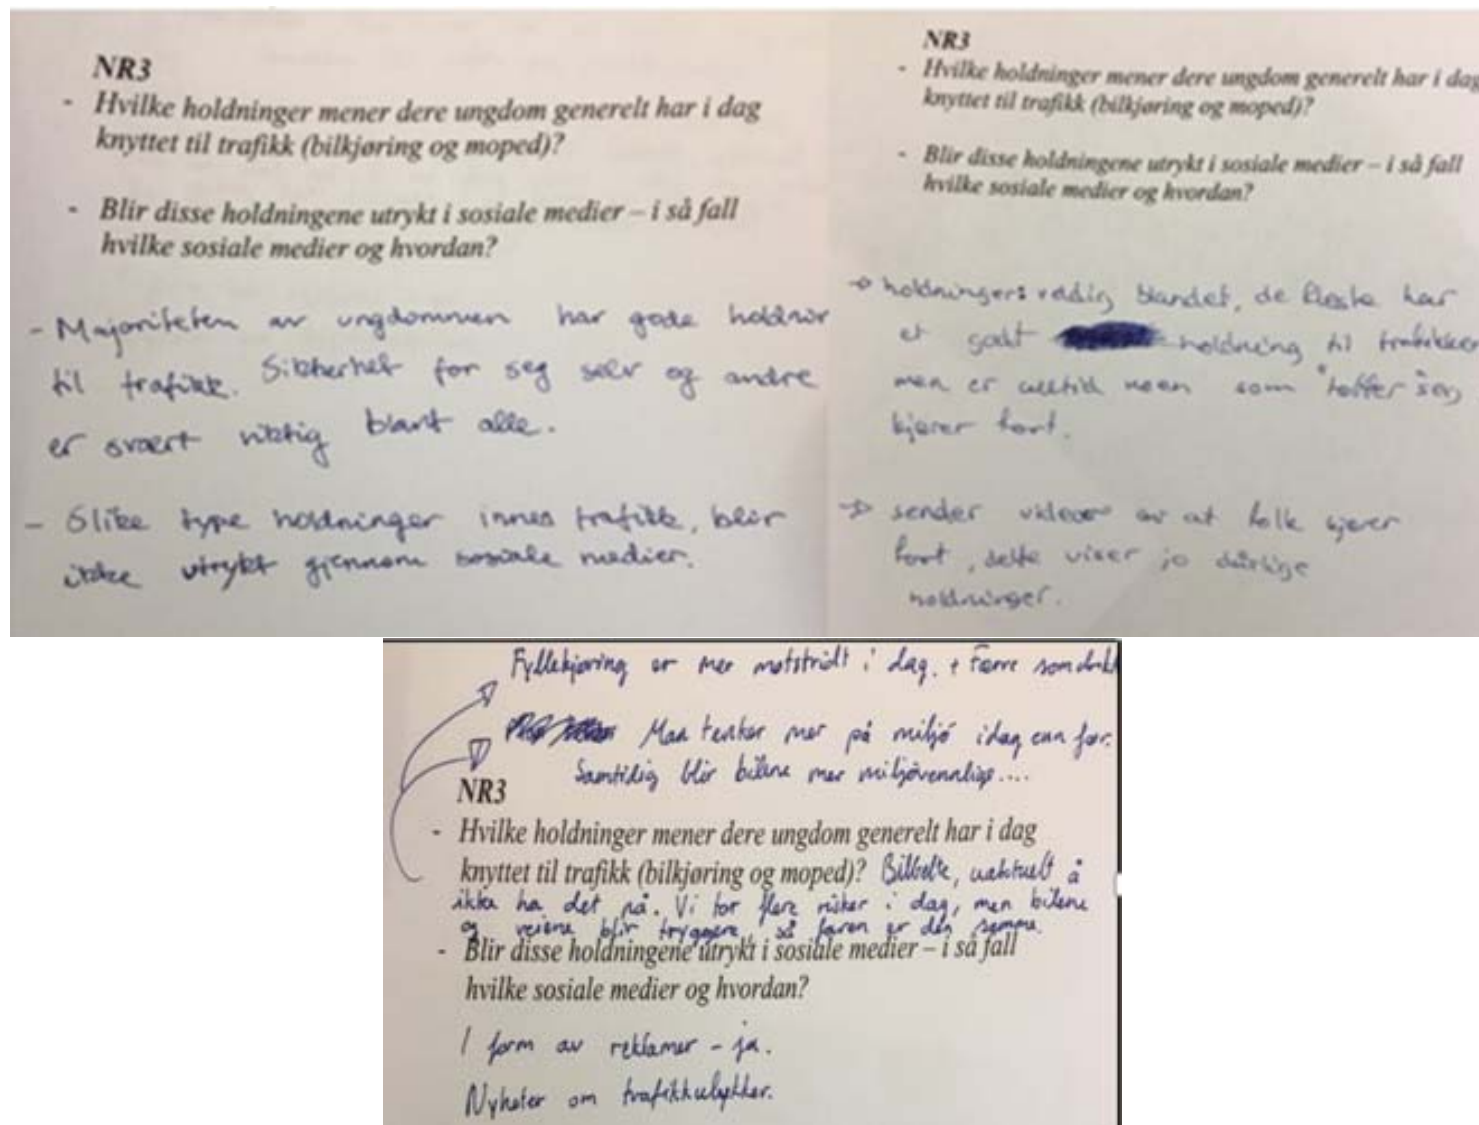 NR3
- Hvilke holdninger mener dere ungdom generelt har i dag
knyttet til trafikk (bilkjøring og moped)?
- Blir disse holdningene utrykt i sosiale medier – i så fall
hvilke sosiale medier og hvordan?
- Majoriteten av ungdommen har gode holdnin
til trafikk. Sikkerhet for seg selv og andre
er svært viktig blant alle.
- Slike type holdninger innen trafikk, blir
ikke utrykt gjennom sosiale medier.
NR3
- Hvilke holdninger mener dere ungdom generelt har i dag
knyttet til trafikk (bilkjøring og moped)?
- Blir disse holdningene utrykt i sosiale medier – i så fall
hvilke sosiale medier og hvordan?
→ holdninger: veldig blandet, de fleste har
et godt holdning til trafikken
men er alltid noen som "tøffer" seg,
kjører fort.
→ sender videoer av at folk kjører
fort, dette viser jo dårlige
holdninger.
Fyllekjøring er mer motstridt i dag. + Færre som
Man tenker mer på miljø idag enn før.
Samtidig blir bilene mer miljøvennlige....
NR3
- Hvilke holdninger mener dere ungdom generelt har i dag
knyttet til trafikk (bilkjøring og moped)? Bilbelte, uaktuelt å
ikke ha det på. Vi tar flere risker i dag, men bilene
og veiene blir tryggere, så faren er den samme.
- Blir disse holdningene utrykt i sosiale medier – i så fall
hvilke sosiale medier og hvordan?
I form av reklamer - ja.
Nyheter om trafikkulykker.